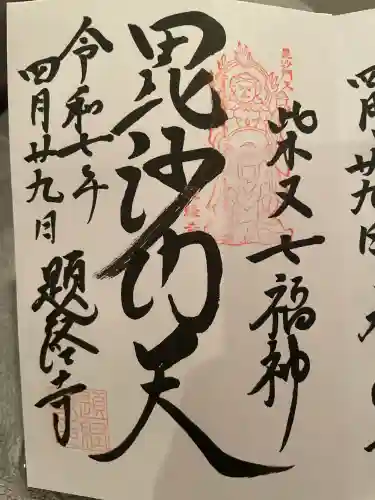 柴又七福神
毘沙門天
令和七年
四月廿九日
題経寺
毘沙門天